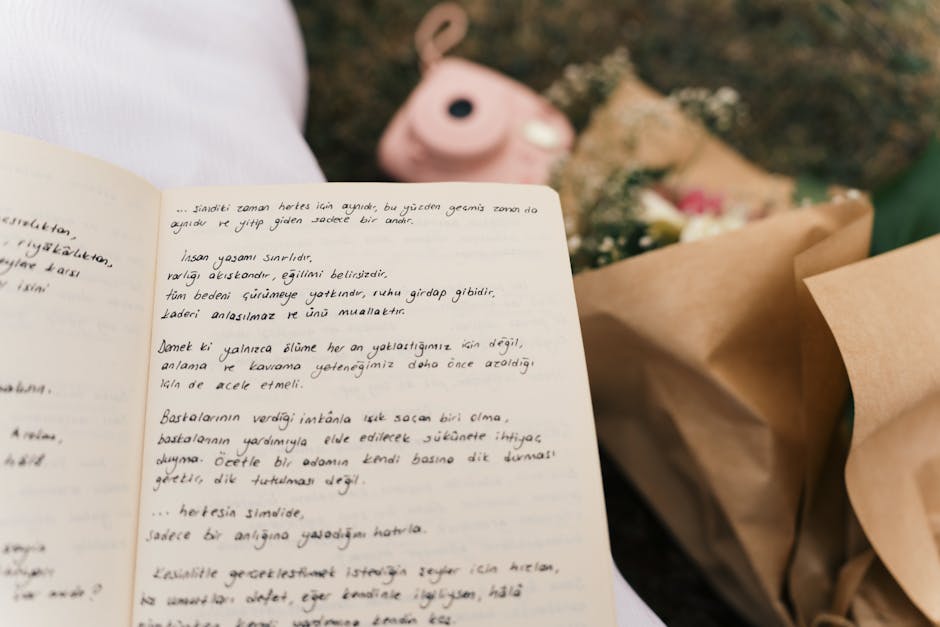 esizlikten,
, riyâkârlıktan,
eylere karşı
r isini
Arelma,
hâlâ
... şimdiki zaman herkes için aynıdır, bu yüzden geçmiş zaman da
aynıdır ve yitip giden sadece bir andır.
İnsan yaşamı sınırlıdır,
varlığı akışkandır, eğilimi belirsizdir,
tüm bedeni çürümeye yatkındır, ruhu girdap gibidir,
kaderi anlaşılmaz ve ünü muallaktır.
Demek ki yalnızca ölüme her an yaklaştığımız için değil,
anlama ve kavrama yeteneğimiz daha önce azaldığı
için de acele etmeli.
Başkalarının verdiği imkânla ışık saçan biri olma,
başkalarının yardımıyla elde edilecek sükûnete ihtiyaç
duyma. Özetle bir adamın kendi başına dik durması
gerekir, dik tutulması değil.
... herkesin şimdide,
sadece bir anlığına yaşadığını hatırla.
Kesinlikle gerçekleştirmek istediğin şeyler için hızlan,
boş umutları defet, eğer kendinle ilgiliysen, hâlâ
mümkünken kendi yardımına kendin koş.